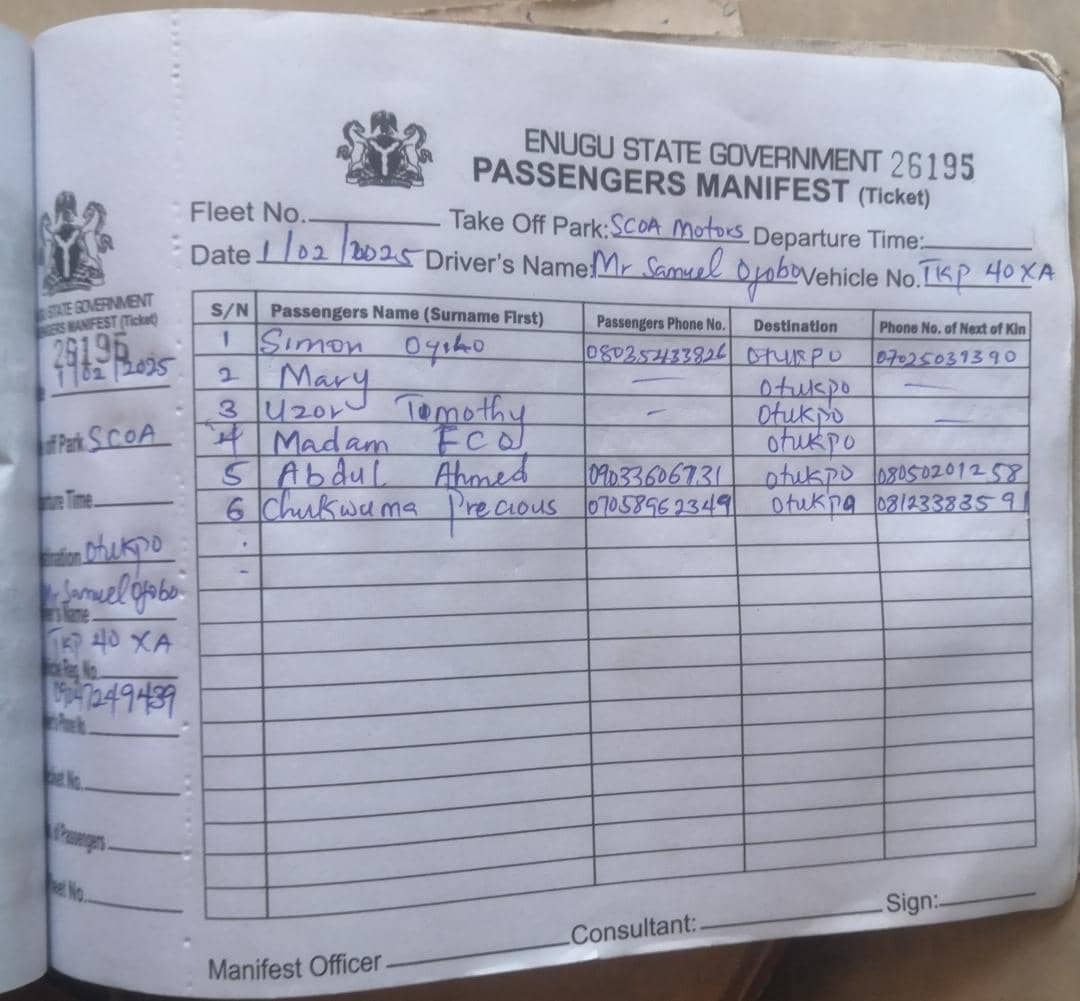 ENUGU STATE GOVERNMENT 26195
PASSENGERS MANIFEST (Ticket)
Fleet No. Take Off Park: SCOA Motors Departure Time:
Date 1/02/2025 Driver's Name: Mr Samuel Ojobo Vehicle No. TKP 40 XA
S/N Passengers Name (Surname First) Passengers Phone No. Destination Phone No. of Next of Kin
1 Simon 08035433826 Otukpo 07025031390
2 Mary — Otukpo —
3 Uzor Tomothy - Otukpo —
4 Madam Otukpo
5 Abdul Ahmed 09033606731 Otukpo 08050201258
6 Chukwuma Precious 07058962349 Otukpa 08123383591
Manifest Officer Consultant: Sign:
STATE GOVERNMENT
MANIFEST (Ticket)
26195
1/02/2025
Park SCOA
Time
Otukpo
Mr Samuel Ojobo
Name
TKP 40 XA
Reg. No.
09047249439
Phone No
No.
of Passengers
Fleet No.